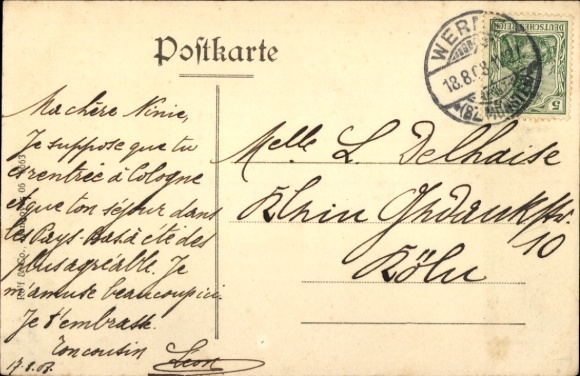 Postkarte
WER
18.8.08
(BZ. MÜNSTER)
DEUTSCHES REICH
5
Ma chère Ninie,
Je suppose que tu
es rentrée à Cologne
et que ton séjour dans
les Pays-Bas a été des
plus agréable. Je
m'amuse beaucoup ici.
Je t'embrasse.
Ton cousin
Léon
17.8.08.
Melle L. Delhaise
Rhin
10
Köln